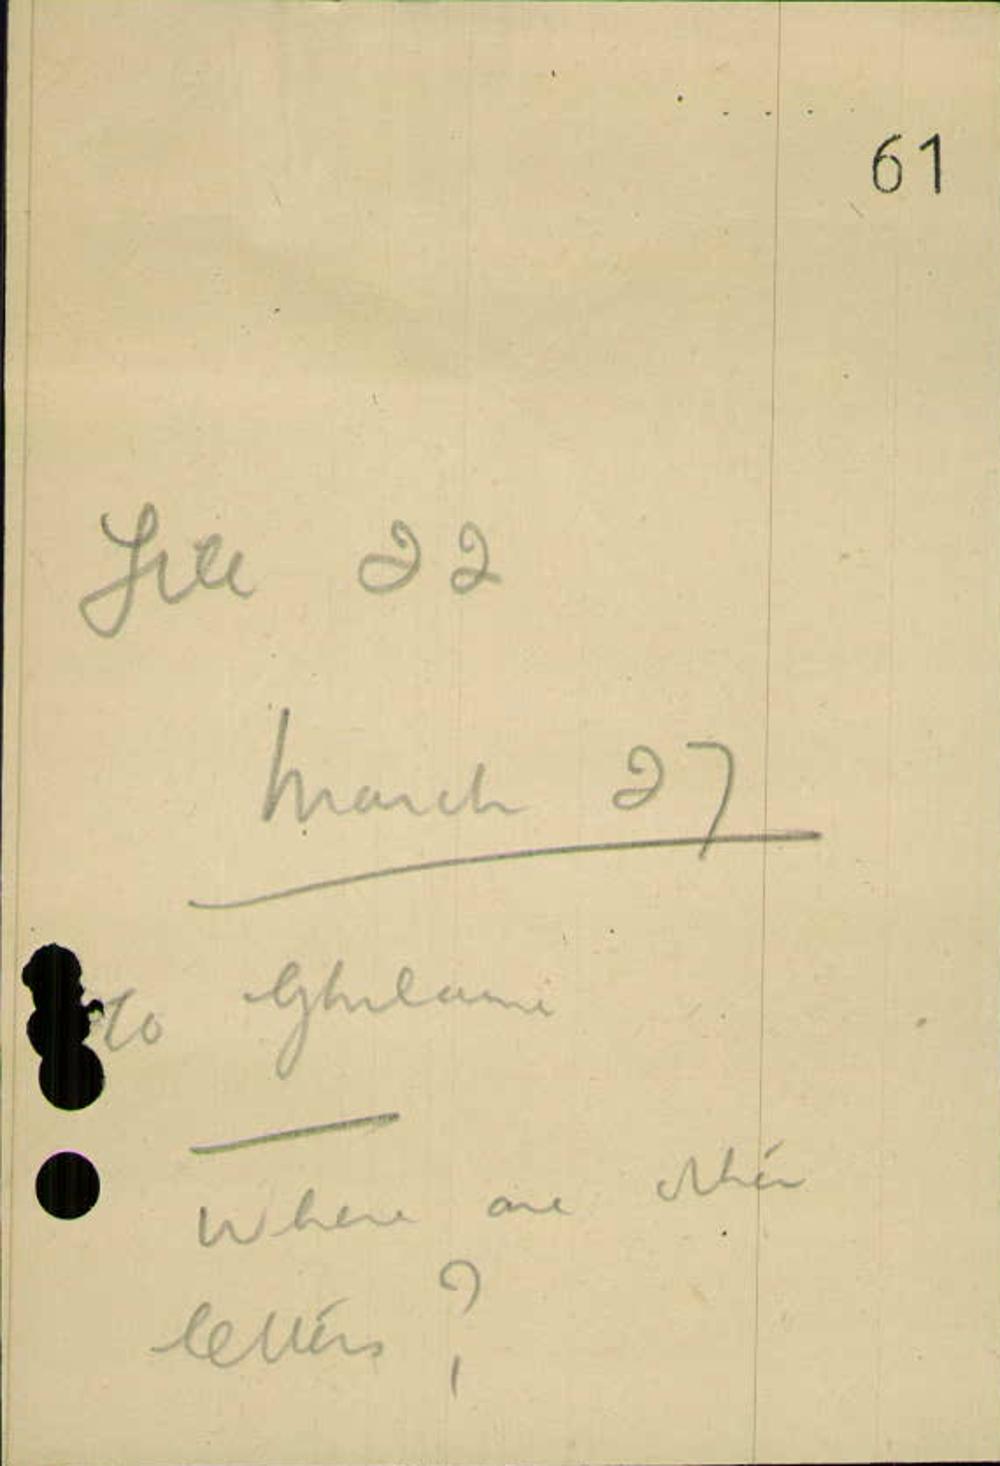 61
File 22
March 27
to Ghilaine
Where are other
letters?